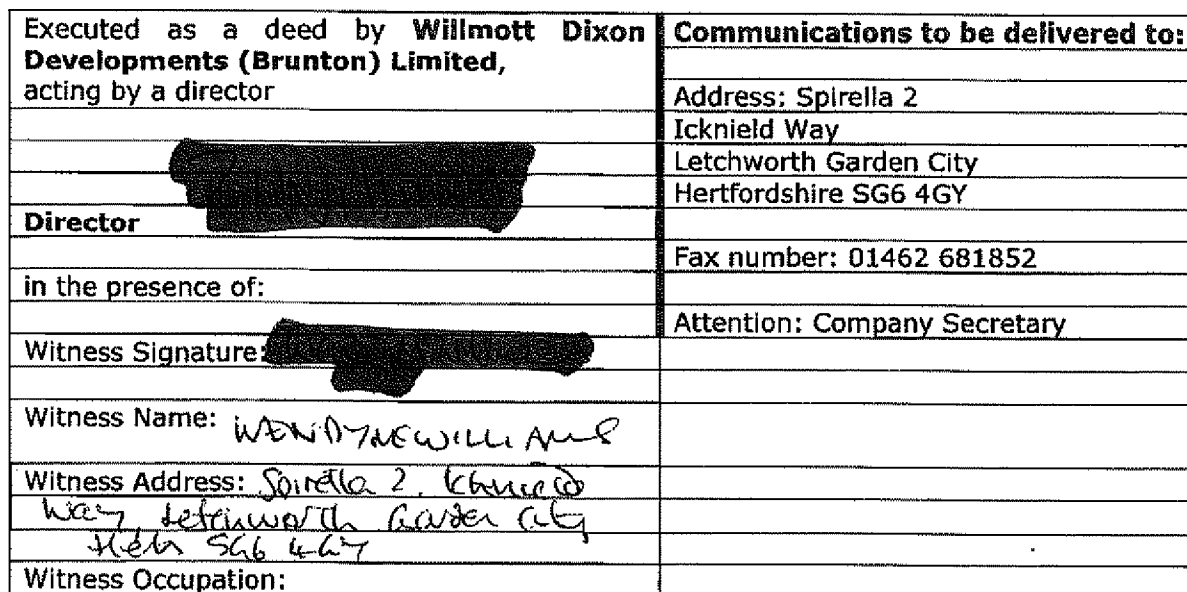 Executed as a deed by Willmott Dixon
Developments (Brunton) Limited,
acting by a director
Director
in the presence of:
Witness Signature:
Witness Name: WENDY
Witness Address: Spirella 2, Icknield
Way, Letchworth Garden City
Herts SG6 4GY
Witness Occupation:
Communications to be delivered to:
Address: Spirella 2
Icknield Way
Letchworth Garden City
Hertfordshire SG6 4GY
Fax number: 01462 681852
Attention: Company Secretary